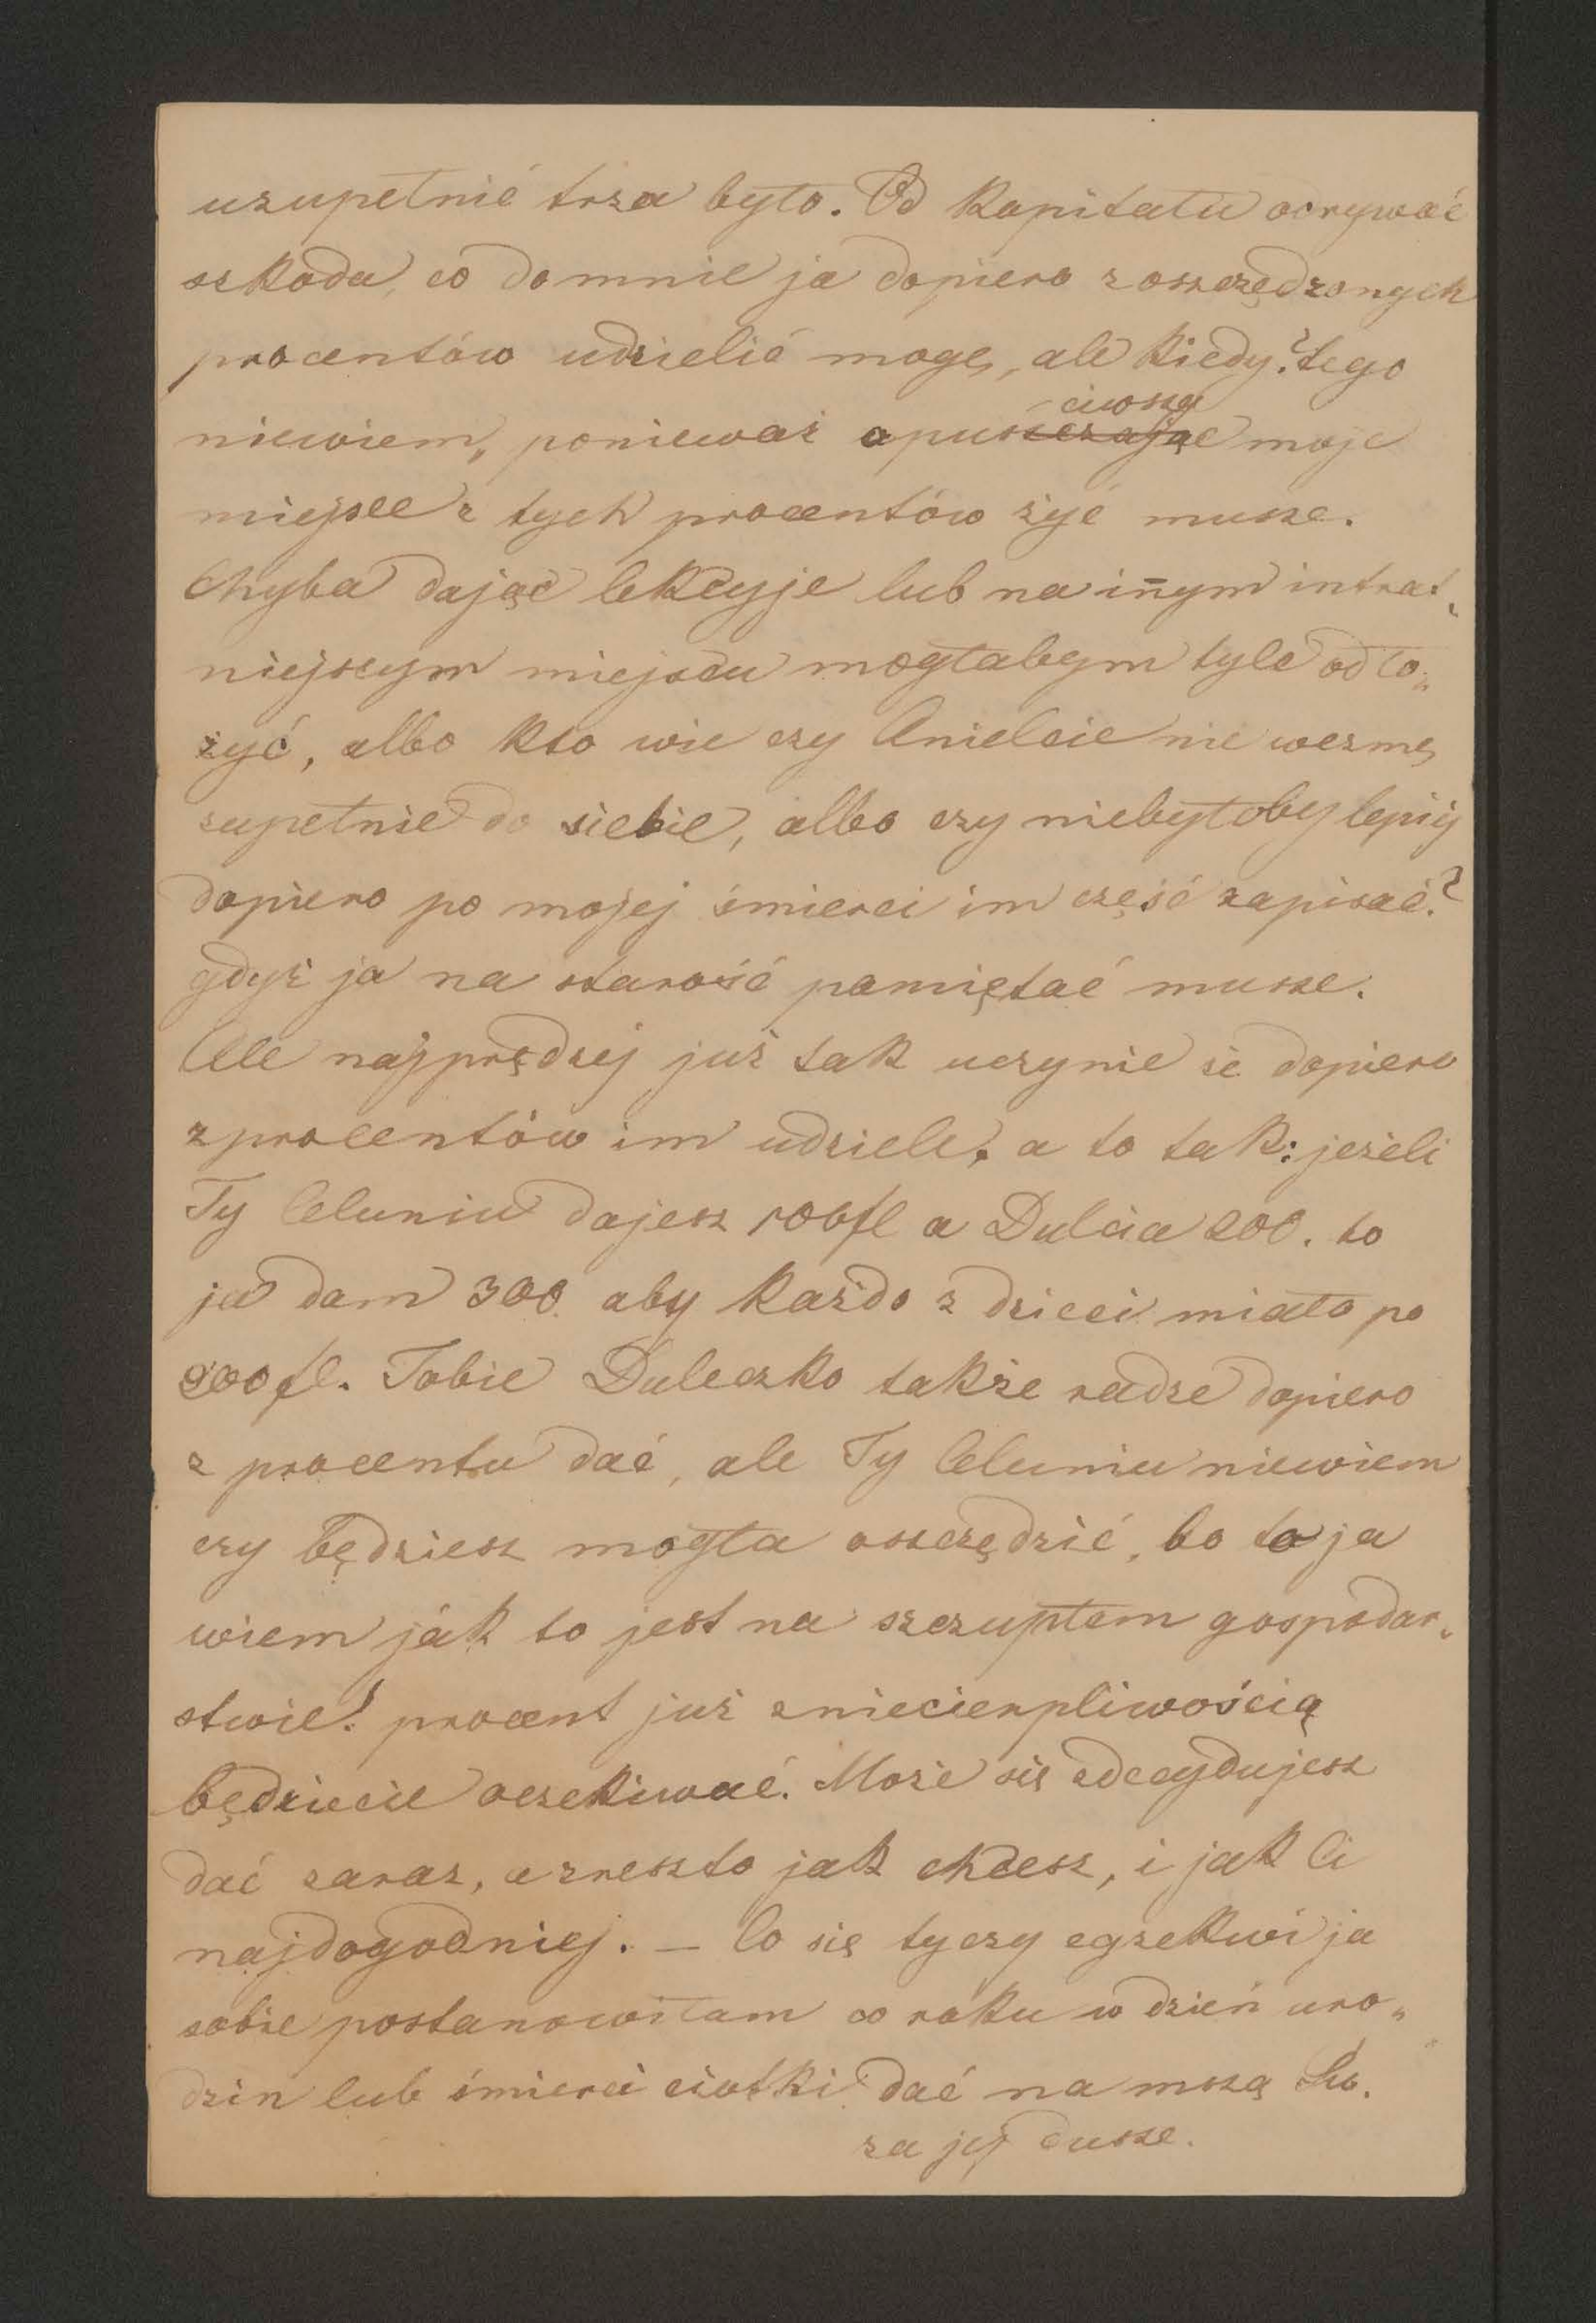 uzupełnić trza było. Od kapitału odrywać
szkoda, co do mnie ja dopiero z oszczędzonych
procentów udzielić mogę, ale kiedy? tego
niewiem, ponieważ opuszczając ciwszy moje
miejsce z tych procentów żyć musze.
Chyba dając lekcyje lub na iñym intrat„
niejszym miejscu mogłabym tyle odło„
żyć, albo kto wie czy Anielcie nie wezmę
zupełnie do siebie, albo czy niebyłoby lepiej
dopiero po mojej śmierci im część zapisać?
gdyż ja na starość pamiętać musze.
Ale najprędzej już tak uczynie że dopiero
z procentów im udziele, a to tak: jeżeli
Ty Celuniu dajesz 100fl a Dulcia 200. to
ja dam 300. aby każdo z dzieci miało po
200 fl. Tobie Duleczko także radze dopiero
z procentu dać, ale Ty Celuniu niewiem
czy będziesz mogła oszczędzić, bo to ja
wiem ják to jest na szczupłem gospodar„
stwie! procent już zniecierpliwością
będziecie oczekiwać. Może się zdecydujesz
dać zaraz, a zreszto jak chcesz, i jak Ci
najdogodniej. — Co się tyczy egzekwi ja
sobie postanowiłam co roku w dzień uro„
dzin lub śmierci ciotki dać na mszą Św.
za jej dusze.